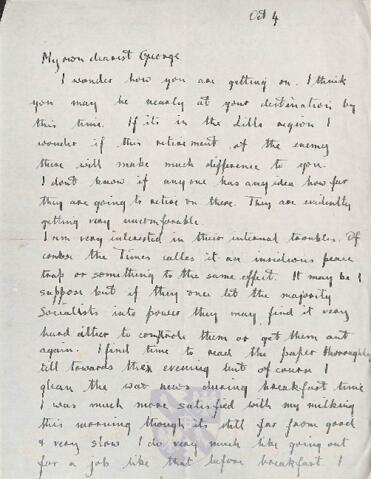 Oct 4
My own dearest George
I wonder how you are getting on. I think
you may be nearly at your destination by
this time. If its in the Lille region I
wonder if this retirement of the enemy
there will make much difference to you.
I don't know if anyone has any idea how far
they are going to retire on there. They are evidently
getting very uncomfortable.
I am very interested in their internal troubles. Of
course the Times calls it an insidious peace
trap or something to the same effect. It may be I
suppose but if they once let the majority
Socialists into power they may find it very
hard either to controle them or get them out
again. I find time to read the paper thoroughly
till towards the evening but of course I
glean the war news during breakfast time
I was much more satisfied with my milking
this morning though its still far from good
& very slow. I do very much like going out
for a job like that before breakfast. I